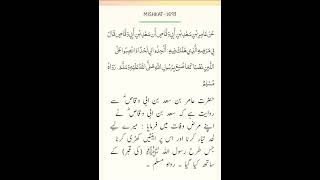 MISHKAT-1693
عَنْ عَامِرِ بْنِ سَعْدِ بْنِ أَبِي وَقَّاصٍ أَنَّ سَعْدَ بْنَ أَبِي وَقَّاصٍ قَالَ
فِي مَرَضِهِ الَّذِي هَلَكَ فِيهِ: أَلْحِدُوا لِي لَحْدًا وَانْصِبُوا عَلَيَّ
اللَّبِنَ نَصْبًا كَمَا صُنِعَ بِرَسُولِ اللَّهِ صَلَّى اللَّهُ عَلَيْهِ وَسَلَّمَ. رَوَاهُ
مُسْلِمٌ
حضرت عامر بن سعد بن ابی وقاص ؓ سے
روایت ہے کہ سعد بن ابی وقاص ؓ نے
اپنے مرض وفات میں فرمایا : میرے لیے
لحد تیار کرنا اور اس پر اینٹیں کھڑی کرنا
جس طرح رسول اللہ ﷺ (کی قبر) کے
ساتھ کیا گیا ۔ رواہ مسلم ۔